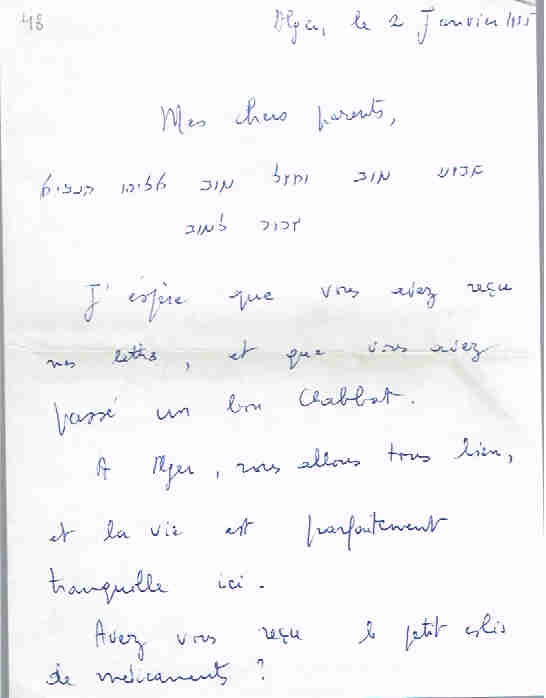 48
Alger, le 2 Janvier 1955
Mes chers parents,
שבוע טוב ומזל טוב אליהו הנביא
זכור לטוב
J'espère que vous avez reçu
mes lettres, et que vous avez
passé un bon Chabbat.
A Alger, nous allons tous bien,
et la vie est parfaitement
tranquille ici.
Avez vous reçu le petit colis
de médicaments ?